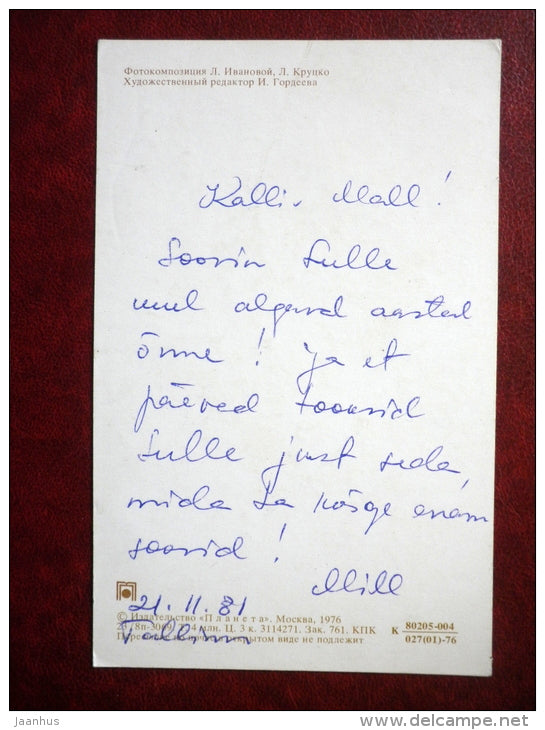 Фотокомпозиция Л. Ивановой, Л. Круцко
Художественный редактор И. Гордеева
Kalli Mall!
Soovin Sulle
uuel algaval aastal
õnne! Ja et
päevad tooksid
Sulle just seda,
mida Sa kõige enam
soovid!
Mill
21.11.81
© Издательство «Планета». Москва, 1976
млн. Ц. 3 к. 3114271. Зак. 761. КПК
К 80205-004
027(01)-76
открытом виде не подлежит
Tallinn
delcampe.net
jauhus